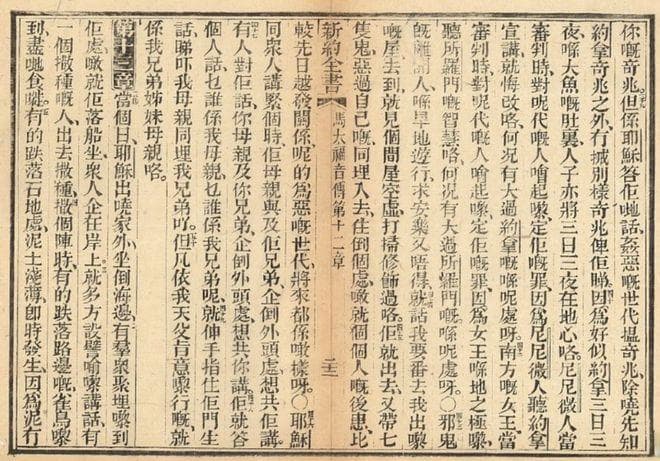 你嘅奇兆、但係耶穌答佢哋話、姦惡嘅世代揾奇兆、除嘵先知
約拿奇兆之外、冇搣別樣奇兆俾佢睇、因爲好似約拿三日三
夜喺大魚嘅肚裏、人子亦將三日三夜在地心咯。尼尼微人當
審判時、對呢代嘅人噲起嚟、定佢嘅罪、因爲尼尼微人聽約拿
宣講、就悔改咯、何況有大過約拿嘅喺呢處呀。南方嘅女王、當
審判時、對呢代嘅人噲起嚟、定佢嘅罪、因爲女王喺地之極嚟、
聽所羅門嘅智慧咯、何况有大過所羅門嘅喺呢處呀。○邪鬼
旣離開人、喺旱地遊行、求安樂、又唔得、就話、我要番去我出嚟
嘅屋去、到、就見個間屋空虛、打掃修飾過咯、佢就出去、又帶七
隻鬼、惡過自己嘅、同埋入去、住倒個處、噉就個個人嘅後患、比
新約全書 馬太福音傳第十二章
較先日越發關係、呢的爲惡嘅世代、將來都係噉樣呀。○耶穌
同衆人講緊個時、佢母親與及佢兄弟、企倒外頭處、想共佢講、
有人對佢話、你母親及你兄弟、企倒外頭處、想共你講、佢就答
個人話、乜誰係我母親、乜誰係我兄弟呢、就伸手指住佢門生
話、睇吓我母親同埋我兄弟吖。但凡依我天父旨意嚟行嘅、就
係我兄弟姊妹母親咯。
第十三章 當個日、耶穌出嘵家外、坐倒海邊、有羣衆聚埋嚟到
佢處、噉就佢落船坐、衆人企在岸上、就多方設譬喻嚟講話、有
一個撒種嘅人、出去撒種、撒個陣時、有的跌落路邊嘅、雀鳥嚟
到盡哋食嘵、有的跌落石地處、泥土淺薄、卽時發生、因爲泥冇